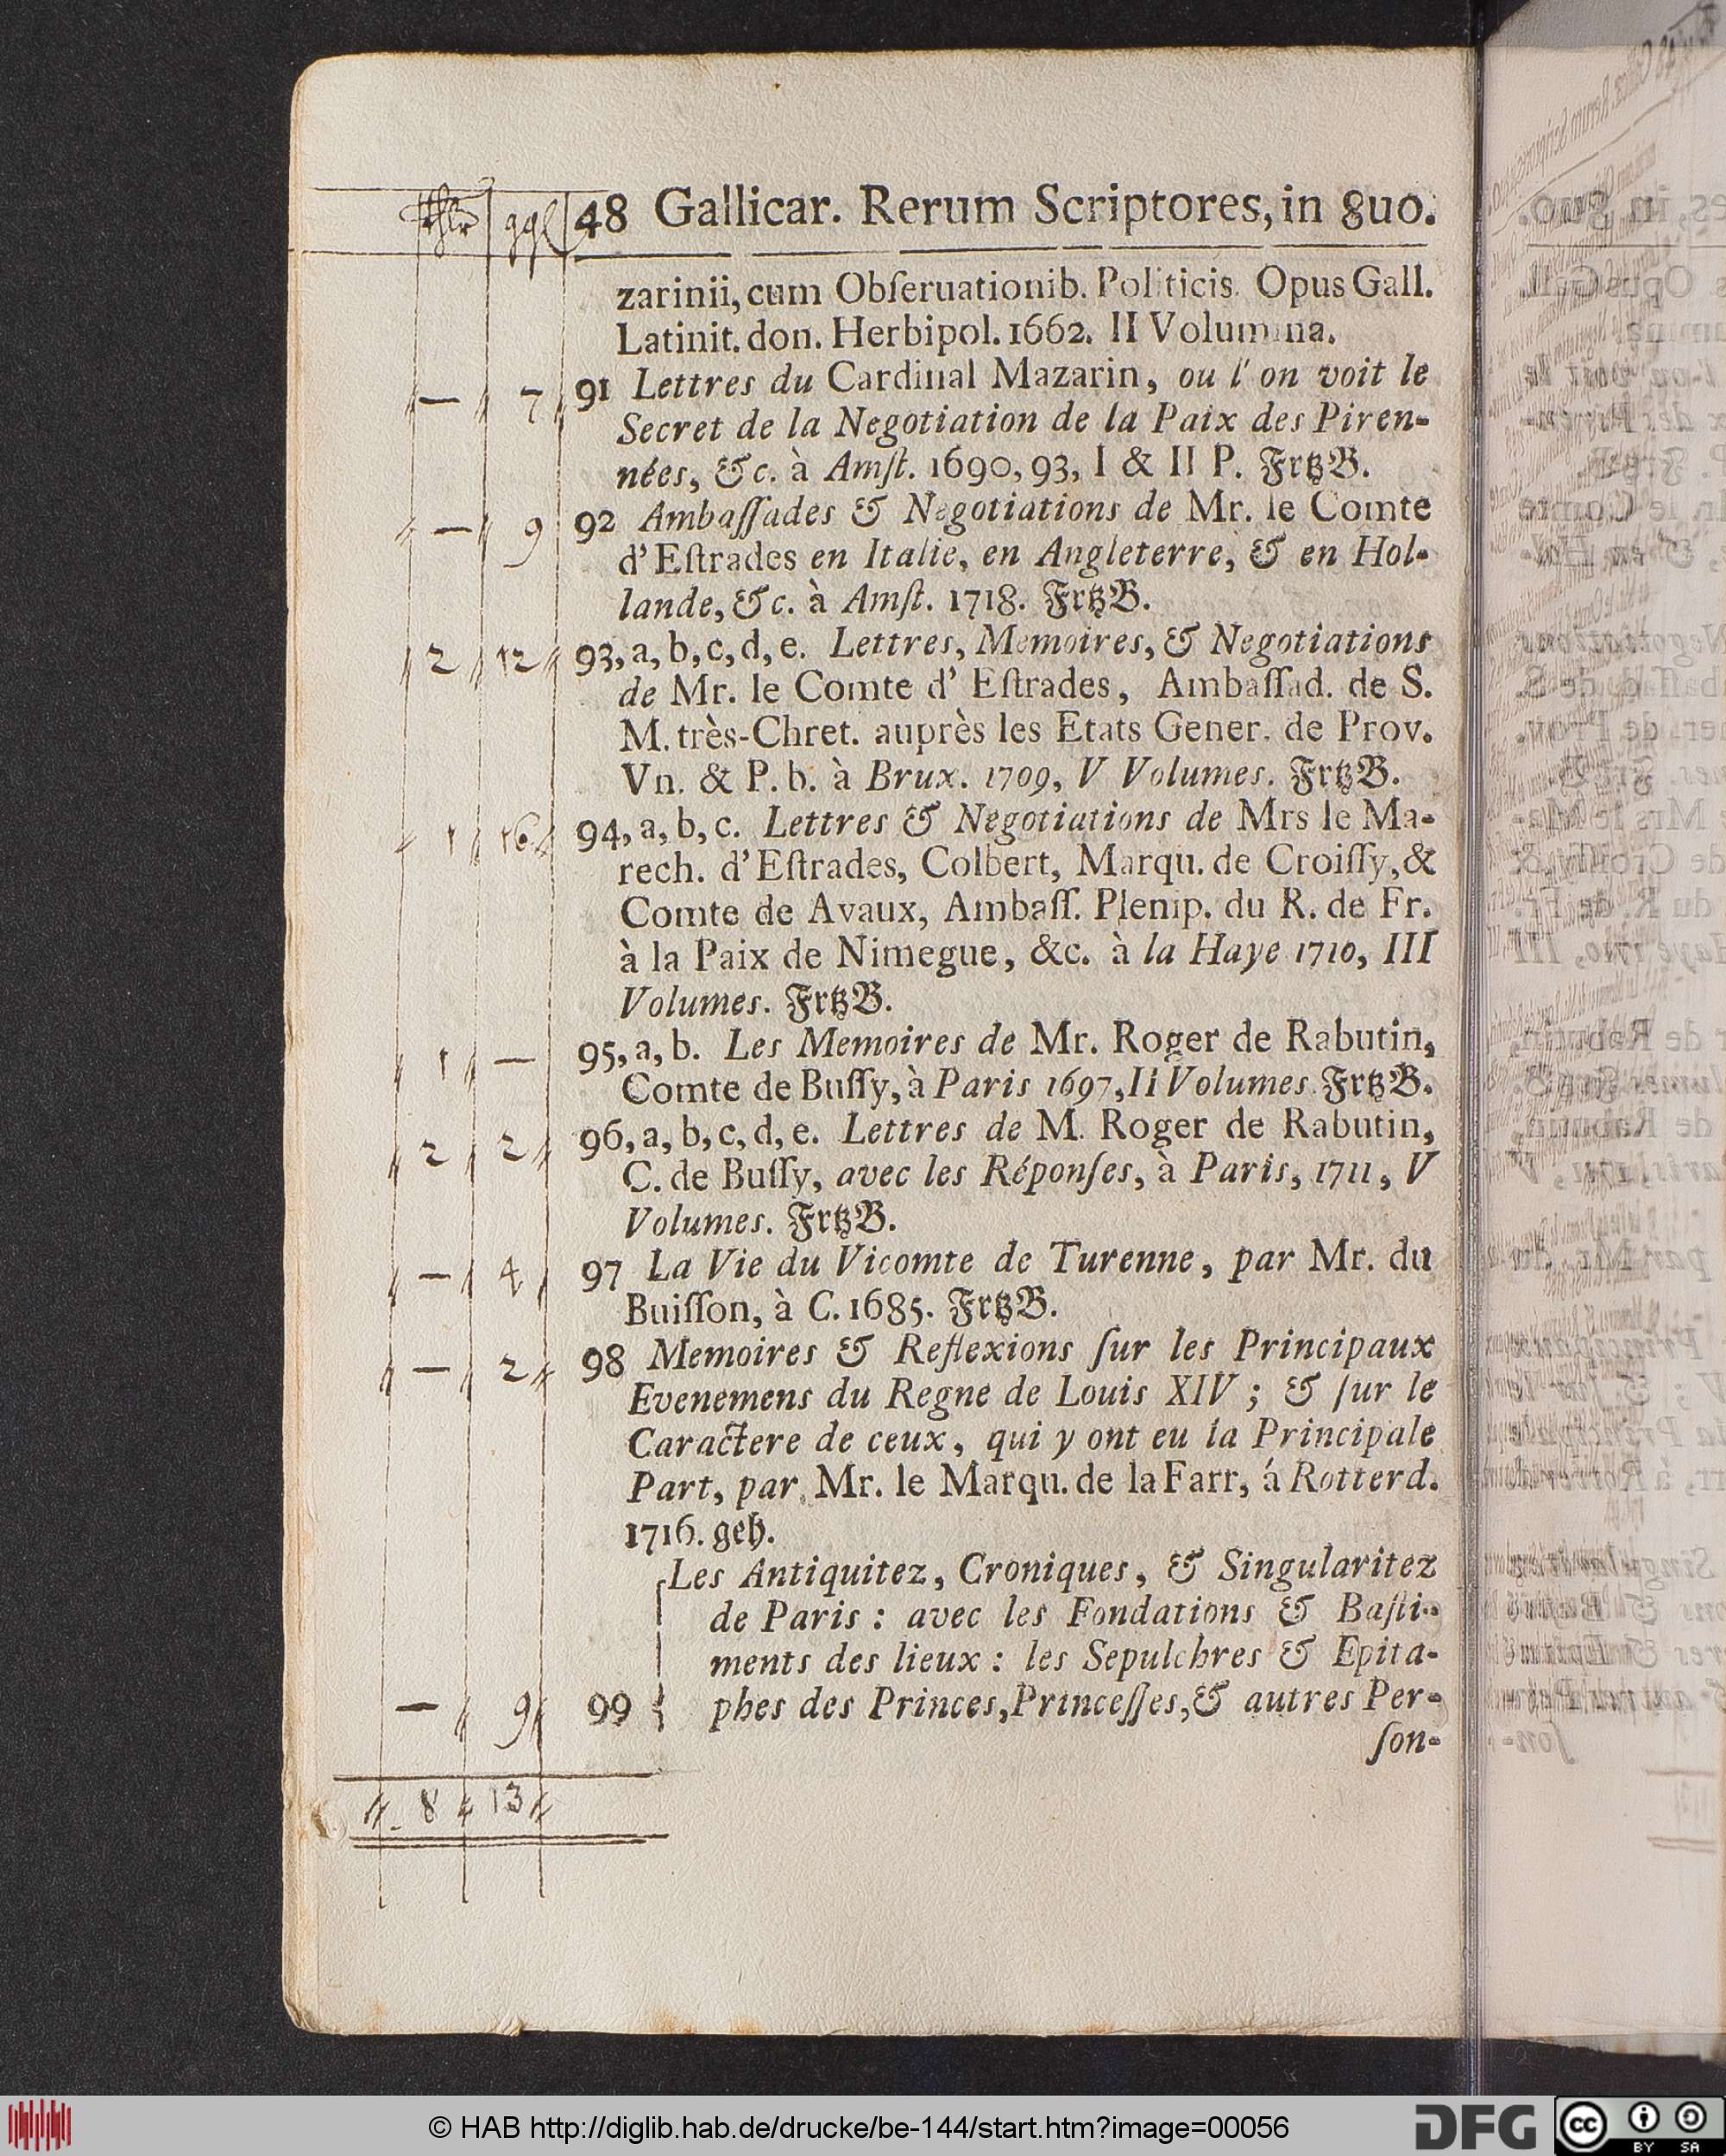 thlr ggl 48 Gallicar. Rerum Scriptores, in 8uo.
zarinii, cum Obſeruationib. Politicis. Opus Gall.
Latinit. don. Herbipol. 1662. II Volumina.
— 7 91 Lettres du Cardinal Mazarin, ou l' on voit le
Secret de la Negotiation de la Paix des Piren-
nées, &c. à Amſt. 1690, 93, I & II P. FrtzB.
— 9 92 Ambaſſades & Negotiations de Mr. le Comte
d' Eſtrades en Italie, en Angleterre, & en Hol-
lande, &c. à Amſt. 1718. FrtzB.
2 12 93, a, b, c, d, e. Lettres, Memoires, & Negotiations
de Mr. le Comte d' Eſtrades, Ambaſſad. de S.
M. très-Chret. auprès les Etats Gener. de Prov.
Vn. & P. b. à Brux. 1709, V Volumes. FrtzB.
1 16 94, a, b, c. Lettres & Negotiations de Mrs le Ma-
rech. d' Eſtrades, Colbert, Marqu. de Croiſſy, &
Comte de Avaux, Ambaſſ. Plenip. du R. de Fr.
à la Paix de Nimegue, &c. à la Haye 1710, III
Volumes. FrtzB.
1 — 95, a, b. Les Memoires de Mr. Roger de Rabutin,
Comte de Buſſy, à Paris 1697, II Volumes. FrtzB.
2 2 96, a, b, c, d, e. Lettres de M. Roger de Rabutin,
C. de Buſſy, avec les Réponſes, à Paris, 1711, V
Volumes. FrtzB.
— 4 97 La Vie du Vicomte de Turenne, par Mr. du
Buiſſon, à C. 1685. FrtzB.
— 2 98 Memoires & Reflexions ſur les Principaux
Evenemens du Regne de Louis XIV; & ſur le
Caractere de ceux, qui y ont eu la Principale
Part, par Mr. le Marqu. de la Farr, á Rotterd.
1716. geh.
Les Antiquitez, Croniques, & Singularitez
de Paris: avec les Fondations & Baſti-
ments des lieux: les Sepulchres & Epita-
— 9 99 { phes des Princes, Princeſſes, & autres Per-
ſon-
8 13
© HAB http://diglib.hab.de/drucke/be-144/start.htm?image=00056
DFG
cc BY SA